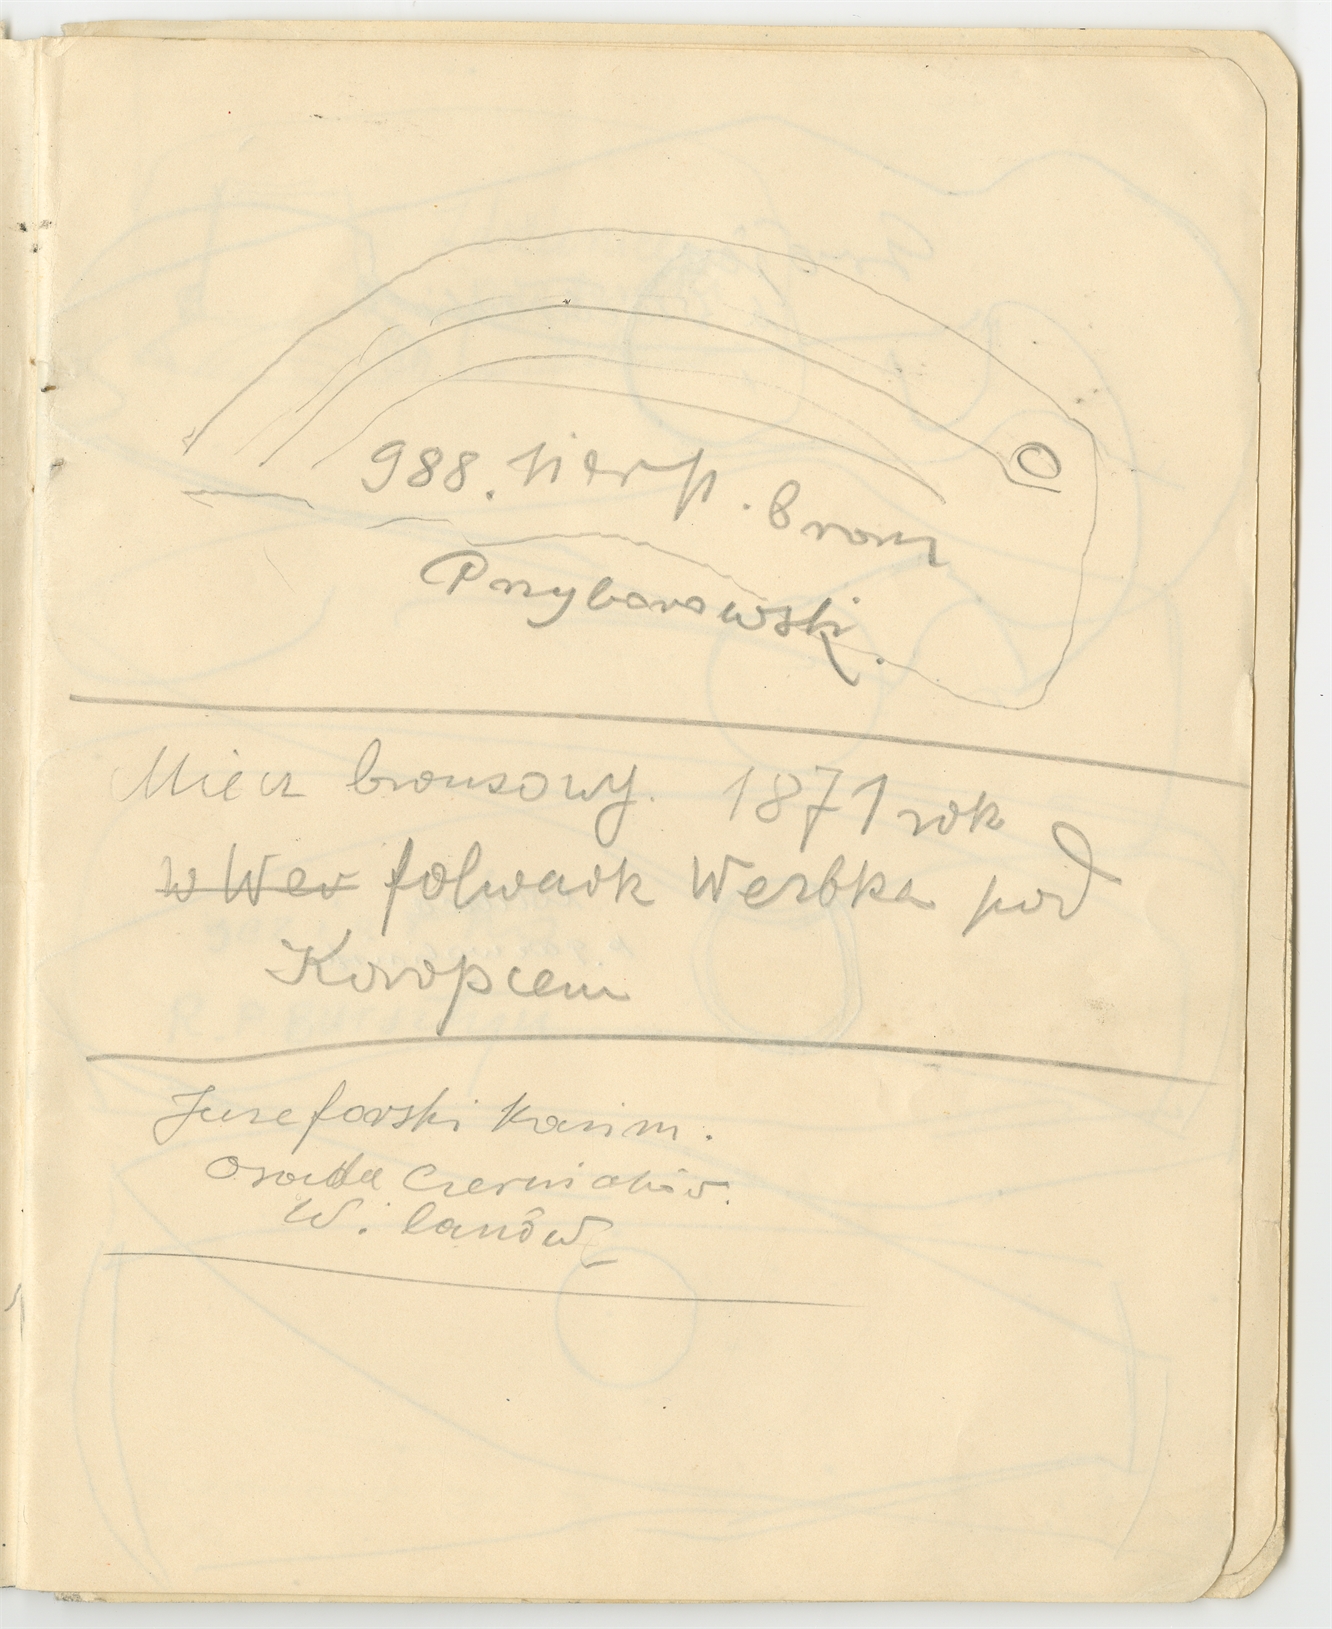 988. sierp. bronz
Przyborowski.
Miecz bronzowy. 1871 rok
w Wer folwark Werbka pod
Koropcem
Juzeforski Kazim.
Osada Czerniaków.
W. lanów